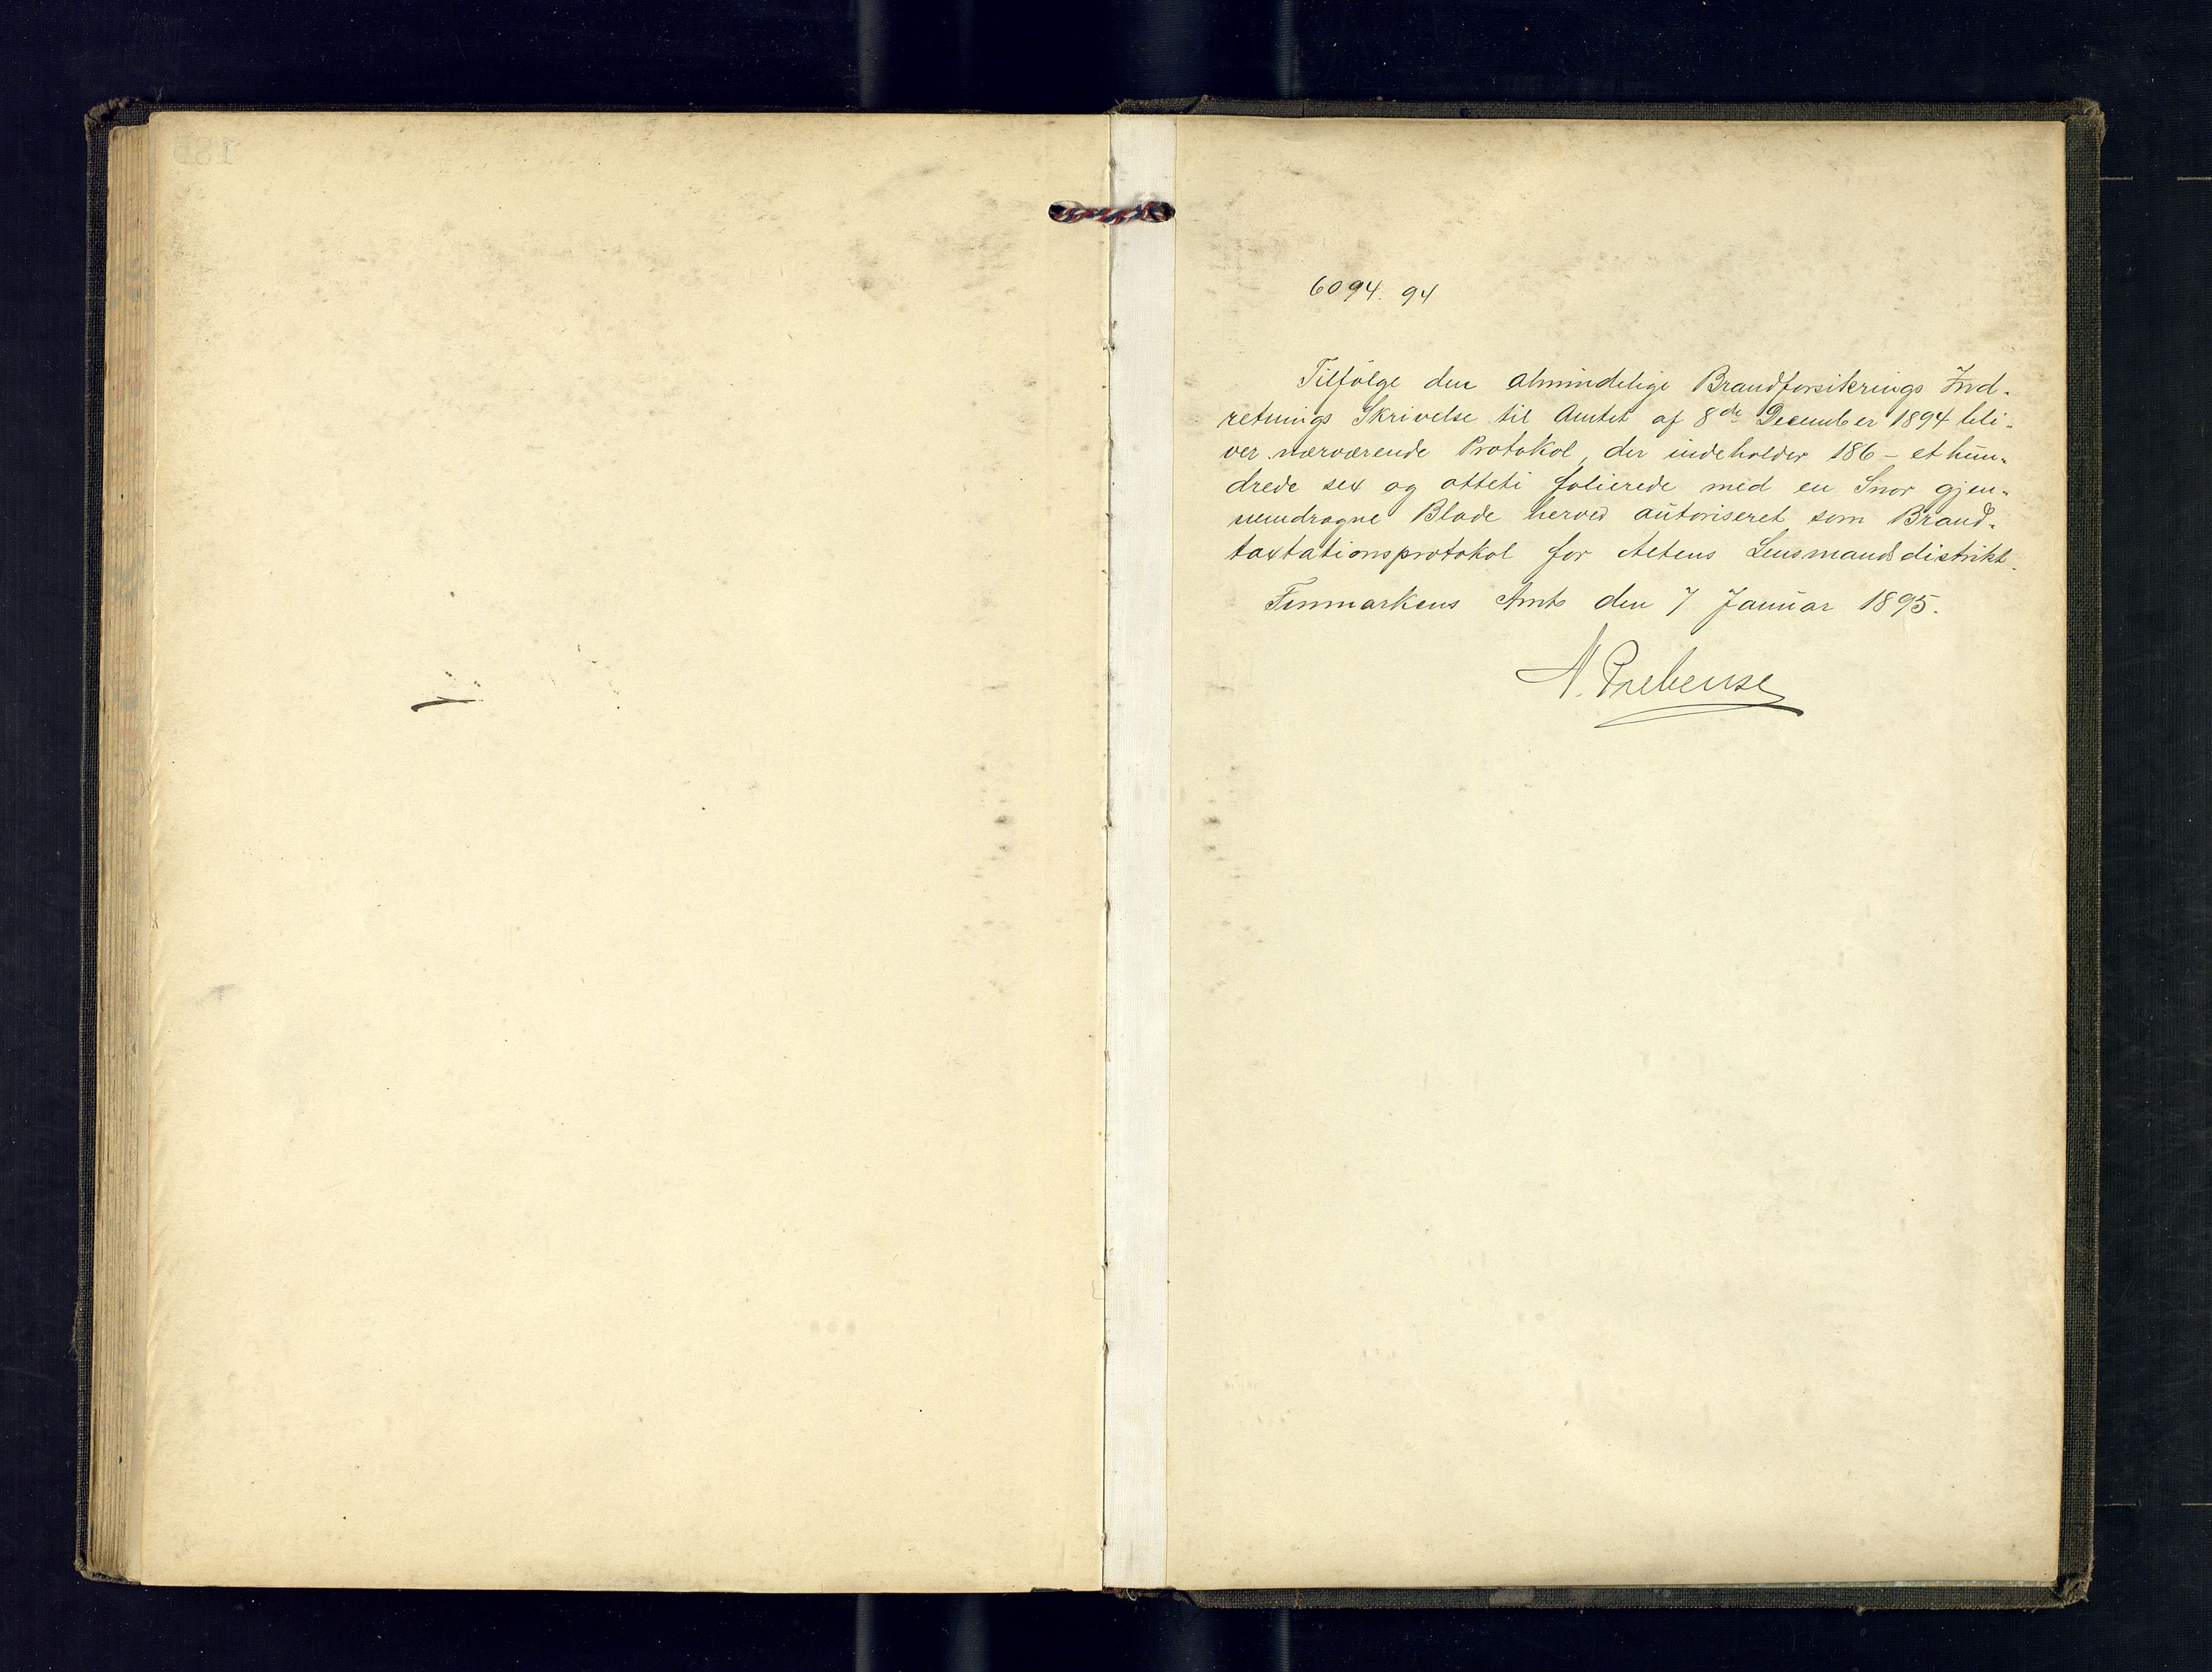 6094. 94
Tilfölge den almindelige Brandforsikrings Ind-
retnings Skrivelse til Amtet af 8de December 1894 bli-
ver nærværende Protokol, der indeholder 186 - et hun-
drede sex og otteti folierede med en Snor gjen-
nemdragne Blade herved autoriseret som Brand-
taxtationsprotokol for Altens Lensmandsdistrikt.
Finmarkens Amt den 7 Januar 1895.
N. Prebensen